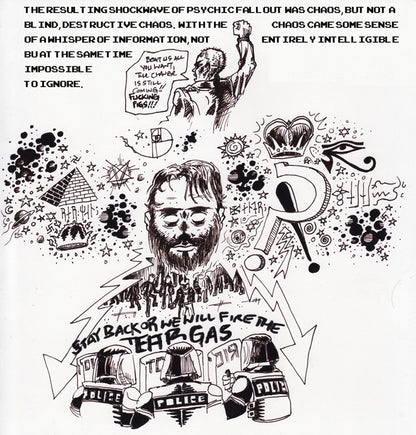 THE RESULTING SHOCKWAVE OF PSYCHIC FALL OUT WAS CHAOS, BUT NOT A
BLIND, DESTRUCTIVE CHAOS. WITH THE CHAOS CAME SOME SENSE
OF A WHISPER OF INFORMATION, NOT ENTIRELY INTELLIGIBLE
BU AT THE SAME TIME
IMPOSSIBLE
TO IGNORE.
BEAT US ALL
YOU WANT,
THE CHANGE
IS STILL
COMING!!
FUCKING
PIGS!!!
STAY BACK OR WE WILL FIRE THE
TEAR GAS
POLICE
POLICE
POLICE